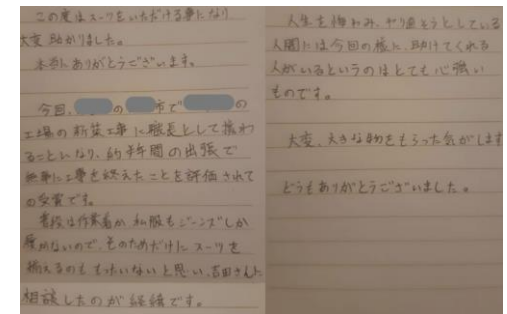 この度はスーツをいただける事になり
大変助かりました。
本当にありがとうございます。
今回、の市での
工場の新築工事に職長として携わ
ることになり、約半年間の出張で
無事に工事を終えたことを評価されて
の受賞です。
普段は作業着か、私服もジーンズしか
履かないので、そのためだけにスーツを
揃えるのももったいないと思い、吉田さんに
相談したのが経緯です。
人生を悔やみ、やり直そうとしている
人間には今回の様に、助けてくれる
人がいるというのはとても心強い
ものです。
大変、大きな物をもらった気がします
どうもありがとうございました。